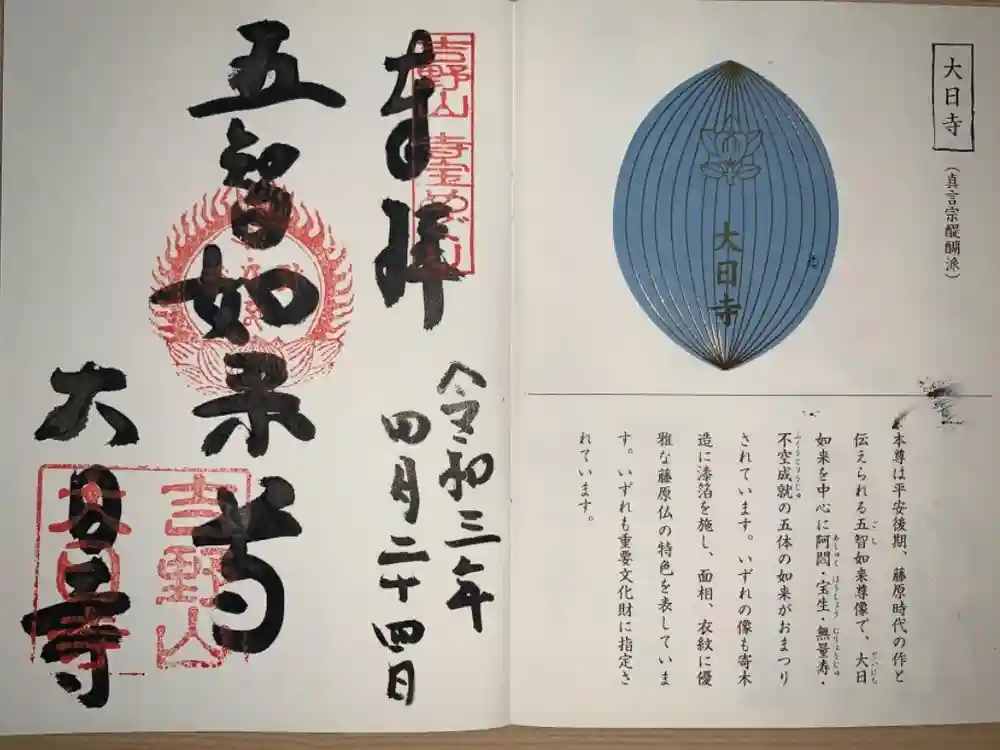 大日寺
（真言宗醍醐派）
大日寺
本尊は平安後期、藤原時代の作と
伝えられる五智如来尊像で、大日
如来を中心に阿閦・宝生・無量寿・
不空成就の五体の如来がおまつり
されています。いずれの像も寄木
造に漆箔を施し、面相、衣紋に優
雅な藤原仏の特色を表していま
す。いずれも重要文化財に指定さ
れています。
ごち
だいにち
あしゅく
ほうしょう
むりょうじゅ
ふくうじょうじゅ
吉野山 寺宝めぐり
奉拝
令和三年
四月二十四日
五智如来
大日寺
吉野山
大日寺